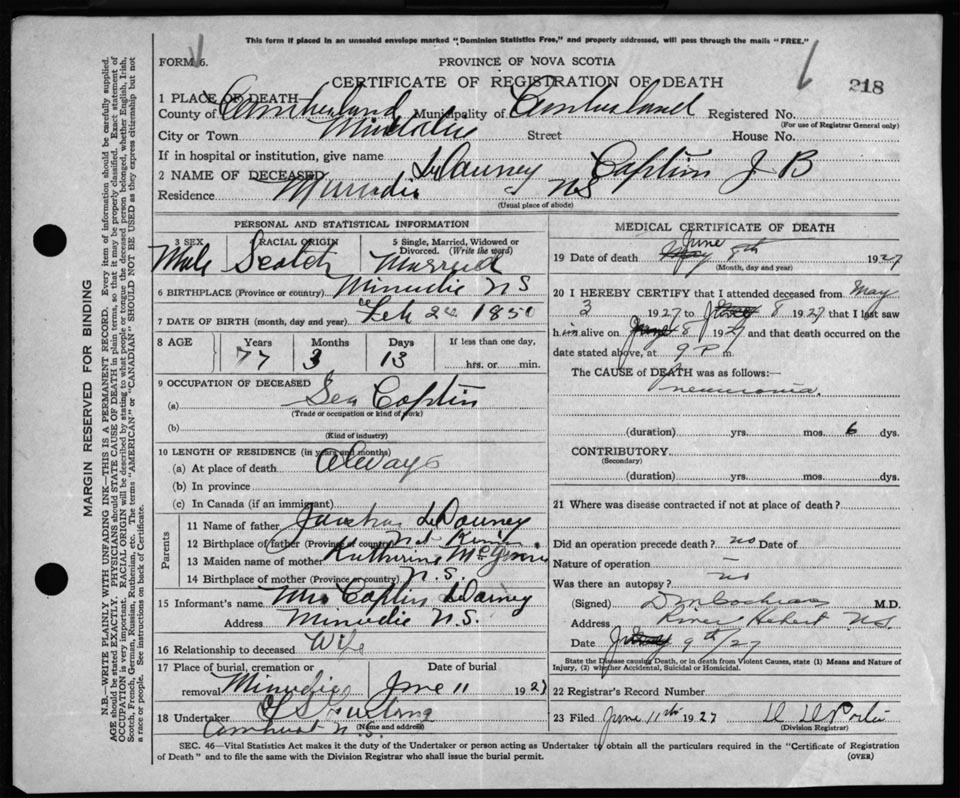 This form if placed in an unsealed envelope marked "Dominion Statistics Free," and properly addressed, will pass through the mails "FREE."
FORM 6.
PROVINCE OF NOVA SCOTIA
CERTIFICATE OF REGISTRATION OF DEATH
218
1 PLACE OF DEATH
County of Cumberland Municipality of Cumberland Registered No.
(For use of Registrar General only)
City or Town Minudie Street House No.
If in hospital or institution, give name
2 NAME OF DECEASED Captin J B
Residence Minudie NS
(Usual place of abode)
PERSONAL AND STATISTICAL INFORMATION
3 SEX RACIAL ORIGIN 5 Single, Married, Widowed or Divorced. (Write the word)
Male Scotch Married
6 BIRTHPLACE (Province or country) Minudie NS
7 DATE OF BIRTH (month, day and year) Feb 24 1850
8 AGE Years Months Days If less than one day,
77 3 13 hrs. or min.
9 OCCUPATION OF DECEASED
(a) Sea Captin
(Trade or occupation or kind of work)
(b)
(Kind of industry)
10 LENGTH OF RESIDENCE (in years and months)
(a) At place of death Always
(b) In province
(c) In Canada (if an immigrant)
Parents
11 Name of father
12 Birthplace of father (Province or country)
13 Maiden name of mother
14 Birthplace of mother (Province or country) N.S.
15 Informant's name Mrs Captin
Address Minudie N.S.
16 Relationship to deceased Wife
17 Place of burial, cremation or removal Date of burial
Minudie June 11 1927
18 Undertaker
(Name and address)
Amherst N.S.
MEDICAL CERTIFICATE OF DEATH
19 Date of death June 8th 1927
(Month, day and year)
20 I HEREBY CERTIFY that I attended deceased from May
3 1927 to 8 1927 that I last saw
h im alive on June 8 1927 and that death occurred on the
date stated above, at 9 P m
The CAUSE of DEATH was as follows:—
Pneumonia.
(duration) yrs. mos. 6 dys.
CONTRIBUTORY
(Secondary)
(duration) yrs. mos. dys.
21 Where was disease contracted if not at place of death?
Did an operation precede death? no Date of
Nature of operation —
Was there an autopsy? no
(Signed) D M Cochran M.D.
Address River Hebert N.S.
Date 9th/27
State the Disease causing Death, or in death from Violent Causes, state (1) Means and Nature of Injury, (2) whether Accidental, Suicidal or Homicidal.
22 Registrar's Record Number
23 Filed June 11th 1927
(Division Registrar)
SEC. 46—Vital Statistics Act makes it the duty of the Undertaker or person acting as Undertaker to obtain all the particulars required in the "Certificate of Registration
of Death" and to file the same with the Division Registrar who shall issue the burial permit.
(OVER)
MARGIN RESERVED FOR BINDING
N.B.—WRITE PLAINLY WITH UNFADING INK—THIS IS A PERMANENT RECORD. Every item of information should be carefully supplied.
AGE should be stated EXACTLY. PHYSICIANS should STATE CAUSE OF DEATH in plain terms, so that it may be properly classified. Exact statement of
OCCUPATION is very important. RACIAL ORIGIN will be described by stating to what people or tongue the deceased person belonged, whether English, Irish,
Scotch, French, German, Russian, Ruthenian, etc. The terms "AMERICAN" or "CANADIAN" SHOULD NOT BE USED as they express citizenship but not
a race or people. See instructions on back of Certificate.